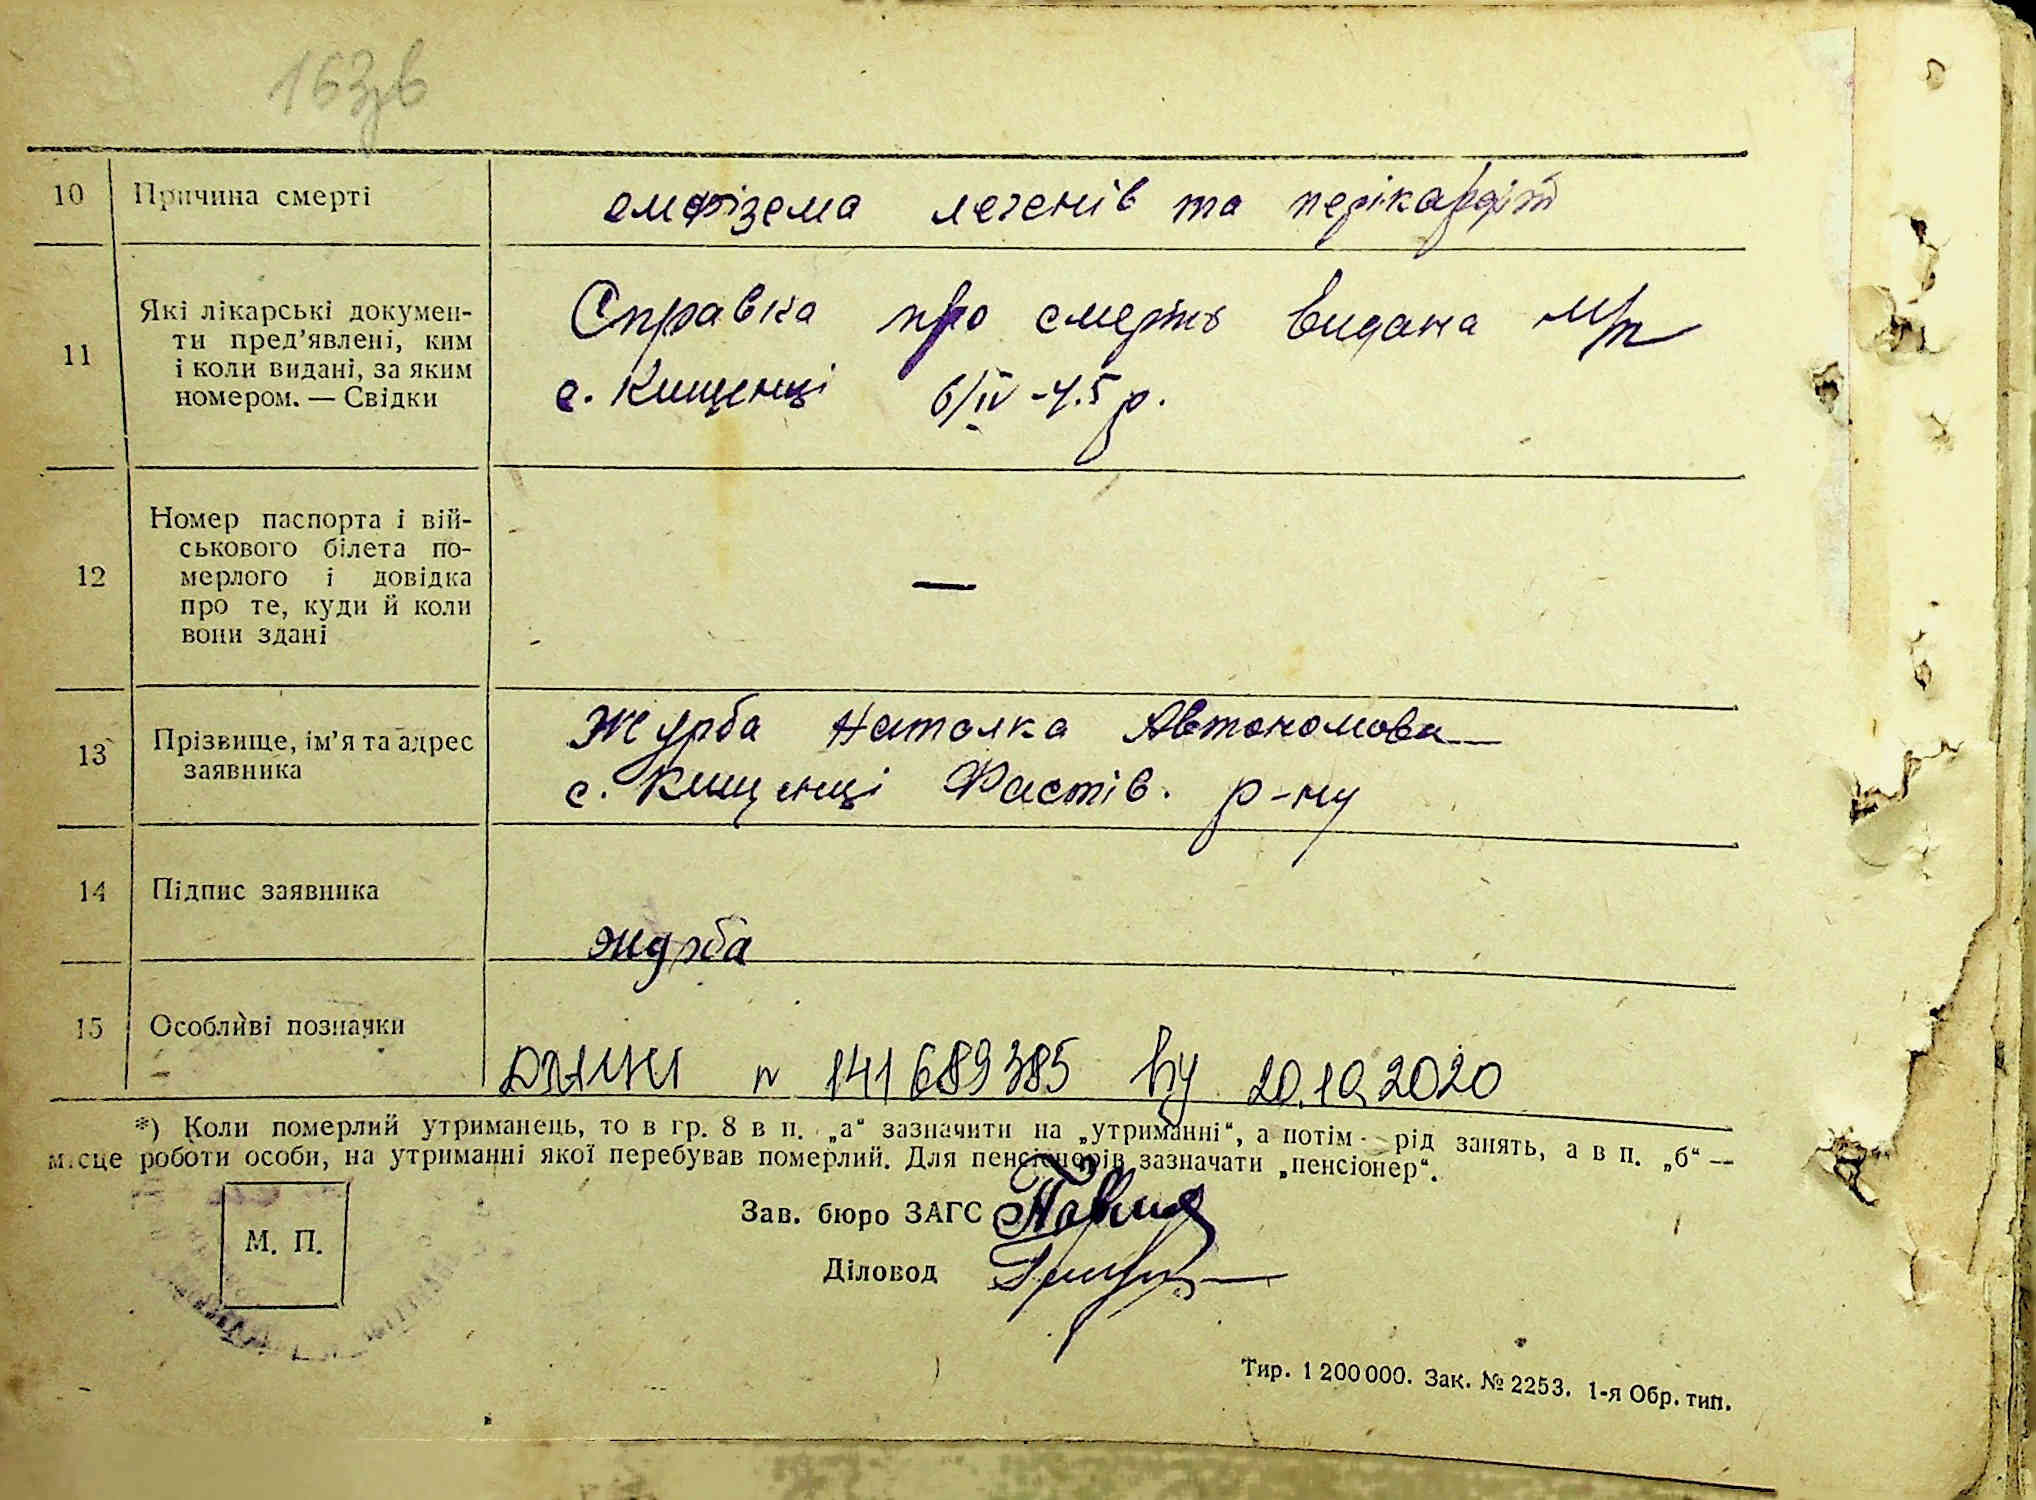 163зв
10 Причина смерті емфізема легенів та перікардіт
11 Які лікарські докумен-
ти пред'явлені, ким
і коли видані, за яким
номером. — Свідки
Справка про смерть видана м/п
с. Кищенці 6/IV-45 р.
12 Номер паспорта і вій-
ськового білета по-
мерлого і довідка
про те, куди й коли
вони здані
—
13 Прізвище, ім'я та адрес
заявника
Журба Наталка Автономова
с. Кищенці Фастів. р-ну
14 Підпис заявника
Журба
15 Особливі позначки
N 141689385 від 20.10.2020
*) Коли померлий утриманець, то в гр. 8 в п. „а“ зазначити на „утриманні“, а потім - рід занять, а в п. „б“ —
місце роботи особи, на утриманні якої перебував померлий. Для пенсіонерів зазначати „пенсіонер“.
М. П.
Зав. бюро ЗАГС
Діловод
Тир. 1 200 000. Зак. № 2253. 1-я Обр. тип.